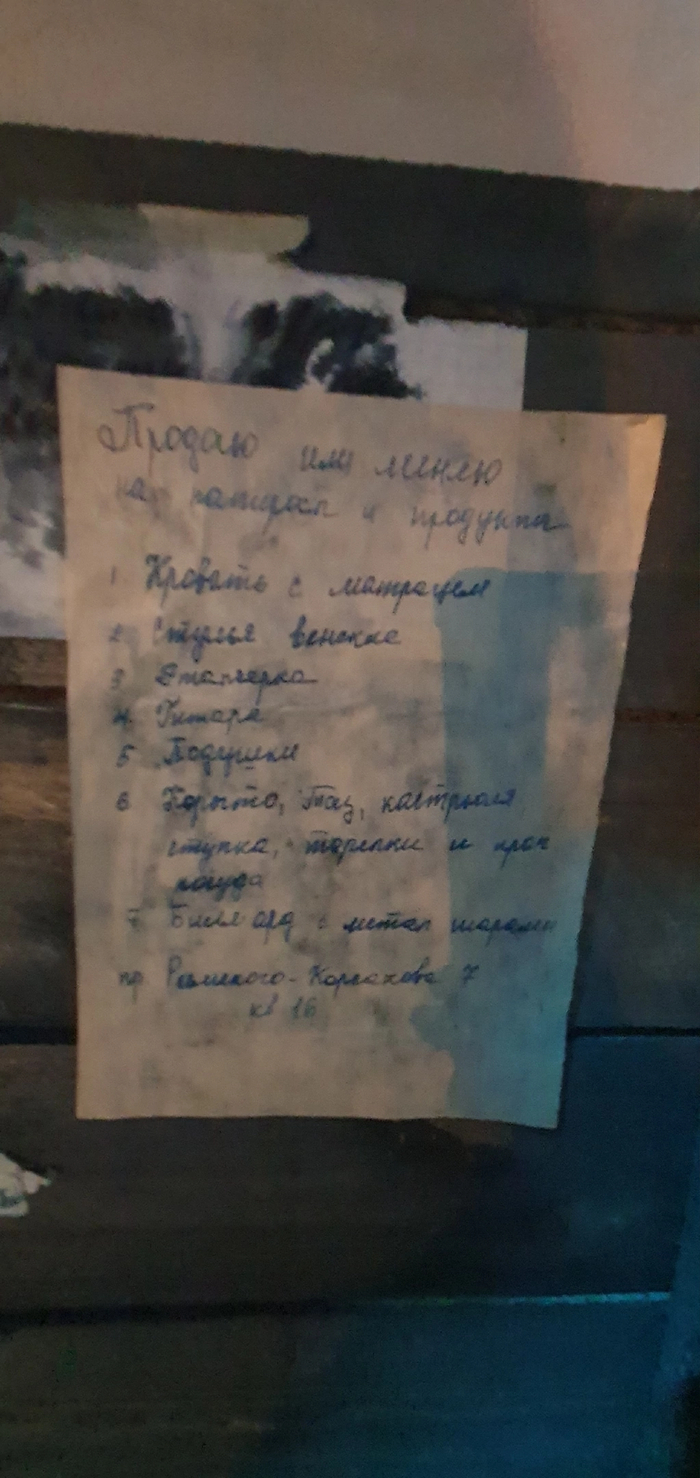 Продаю или меняю
на матерьял и продукты
1 Кровать с матрацем
2 Стулья венские
3 Этажерка
4 Гитара
5 Подушки
6 Корыто, Таз, кастрюля,
ступка, тарелки и проч
посуда
7 Биллиард с метал шарами
пр. Римского-Корсакова 7
кв 16